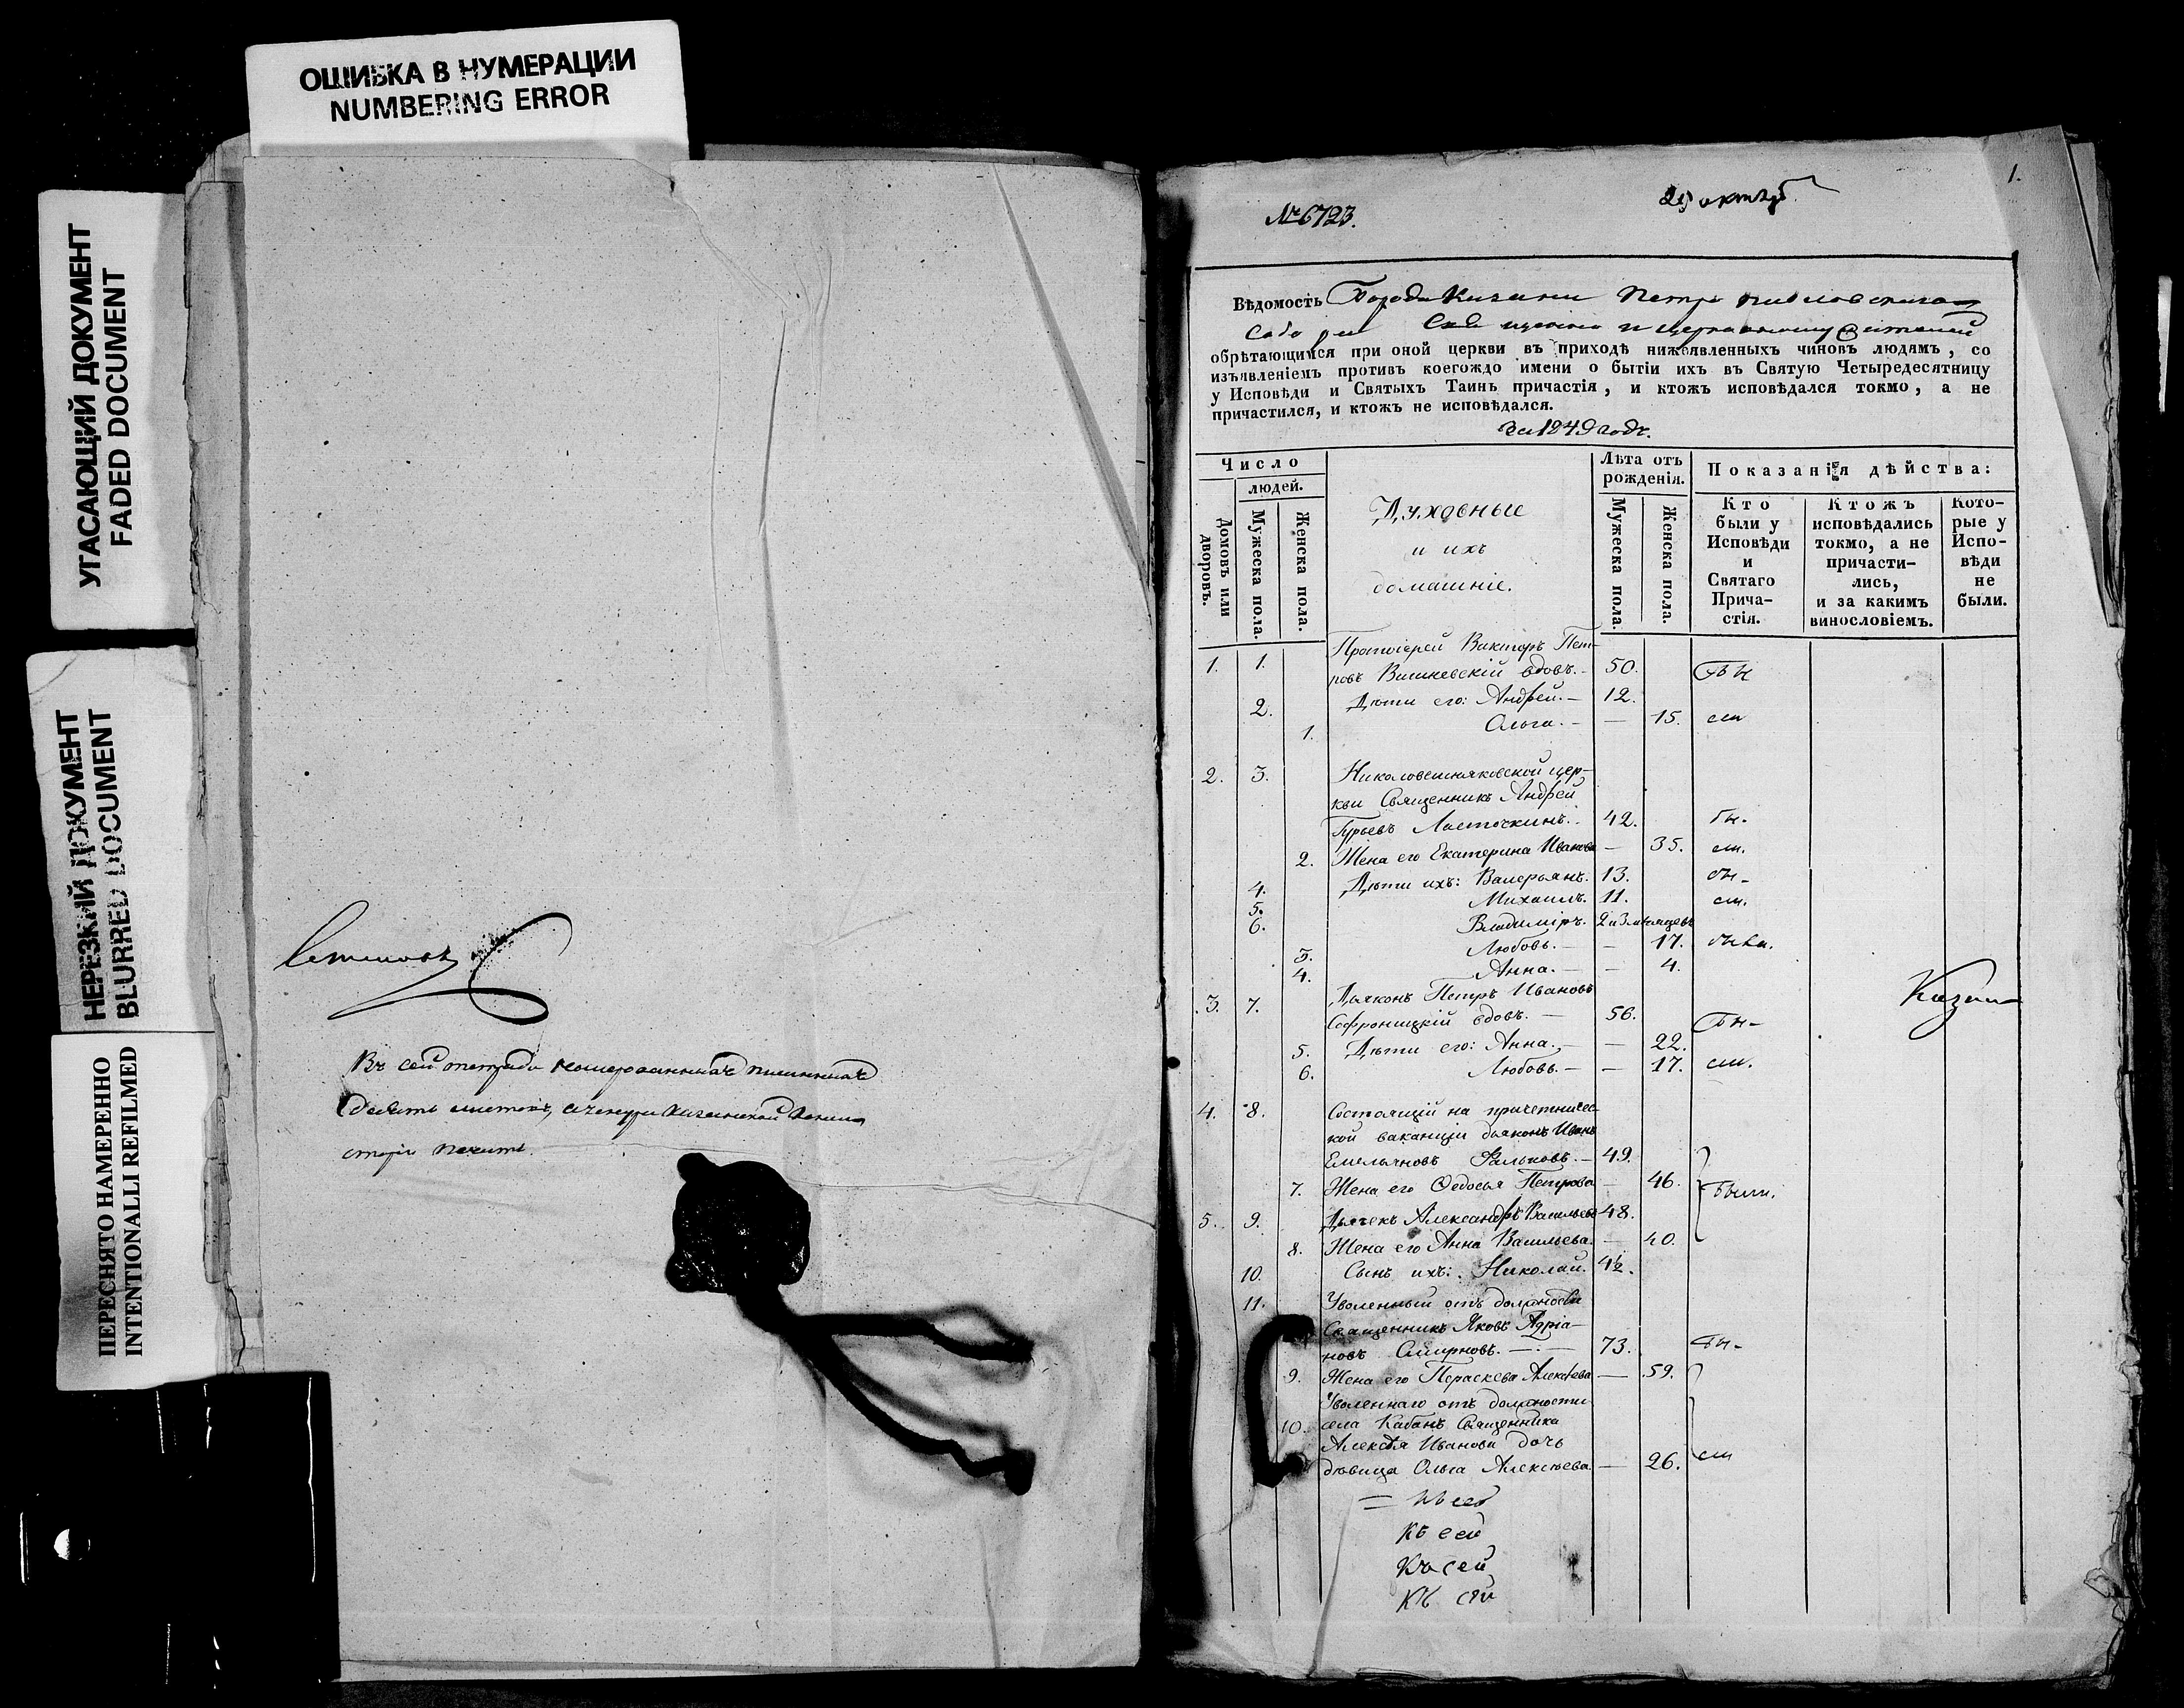 ОШИБКА В НУМЕРАЦИИ
NUMBERING ERROR
УГАСАЮЩИЙ ДОКУМЕНТ
FADED DOCUMENT
НЕРЕЗКИЙ ДОКУМЕНТ
BLURRED DOCUMENT
ПЕРЕСНЯТО НАМЕРЕННО
INTENTIONALLI REFILMED
Въ сей тетради
десять листовъ,
печать.
1.
№ 6723.
29 октяб
Вѣдомость Города Казани Петро Павловскаго
Собора
обрѣтающимся при оной церкви въ приходѣ нижеявленныхъ чиновъ людямъ, со
изъявленіемъ противъ коегождо имени о бытіи ихъ въ Святую Четыредесятницу
у Исповѣди и Святыхъ Таинъ причастія, и ктожъ исповѣдался токмо, а не
причастился, и ктожъ не исповѣдался.
За 1849 годъ.
Число
людей.
Домовъ или дворовъ.
Мужеска пола.
Женска пола.
Духовные
и ихъ
домашніе.
Лѣта отъ
рожденія.
Мужеска пола.
Женска пола.
Показанія дѣйства:
Кто
были у
Исповѣди
и
Святаго
Прича-
стія.
Ктожъ
исповѣдались
токмо, а не
причасти-
лись,
и за какимъ
винословіемъ.
Кото-
рые у
Испо-
вѣди
не
были.
1. 1. Протоіерей Викторъ Пет-
ровъ Вишневскій вдовъ.– 50.
2. Дѣти его: Андрей.– 12.
1. Ольга.– — 15.
2. 3. Николовешняковской цер-
кви Священникъ Андрей
Гурьевъ Ласточкинъ. 42.
2. Жена его Екатерина Иванова — 35.
4. Дѣти ихъ: Валерьянъ. 13.
5. Михаилъ. 11.
6. Владиміръ. 2 и 3 мѣсяцевъ
3. Любовь.– — 17.
4. Анна.– — 4.
3. 7. Дьяконъ Петръ Ивановъ
Софроницкій вдовъ.– 56.
5. Дѣти его: Анна.– — 22.
6. Любовь.– — 17.
4. 8. Состоящій на причетничес-
кой ваканціи дьяконъ Иванъ
Емельяновъ Фальковъ.– 49.
7. Жена его Ѳедосья Петрова — 46. Были.
5. 9. Дьячекъ Александръ Васильевъ 48.
8. Жена его Анна Васильева. — 40.
10. Сынъ ихъ: Николай. 4½.
11. Уволенный отъ должности
Священникъ Яковъ Адріа-
новъ Смирновъ.— 73.
9. Жена его Параскева Алексѣева — 59.
Уволеннаго отъ должности
10. села Кабанъ Священника
Алексѣя Иванова дочь
дѣвица Ольга Алексѣева. — 26.
Къ сей
Къ сей
Къ сей